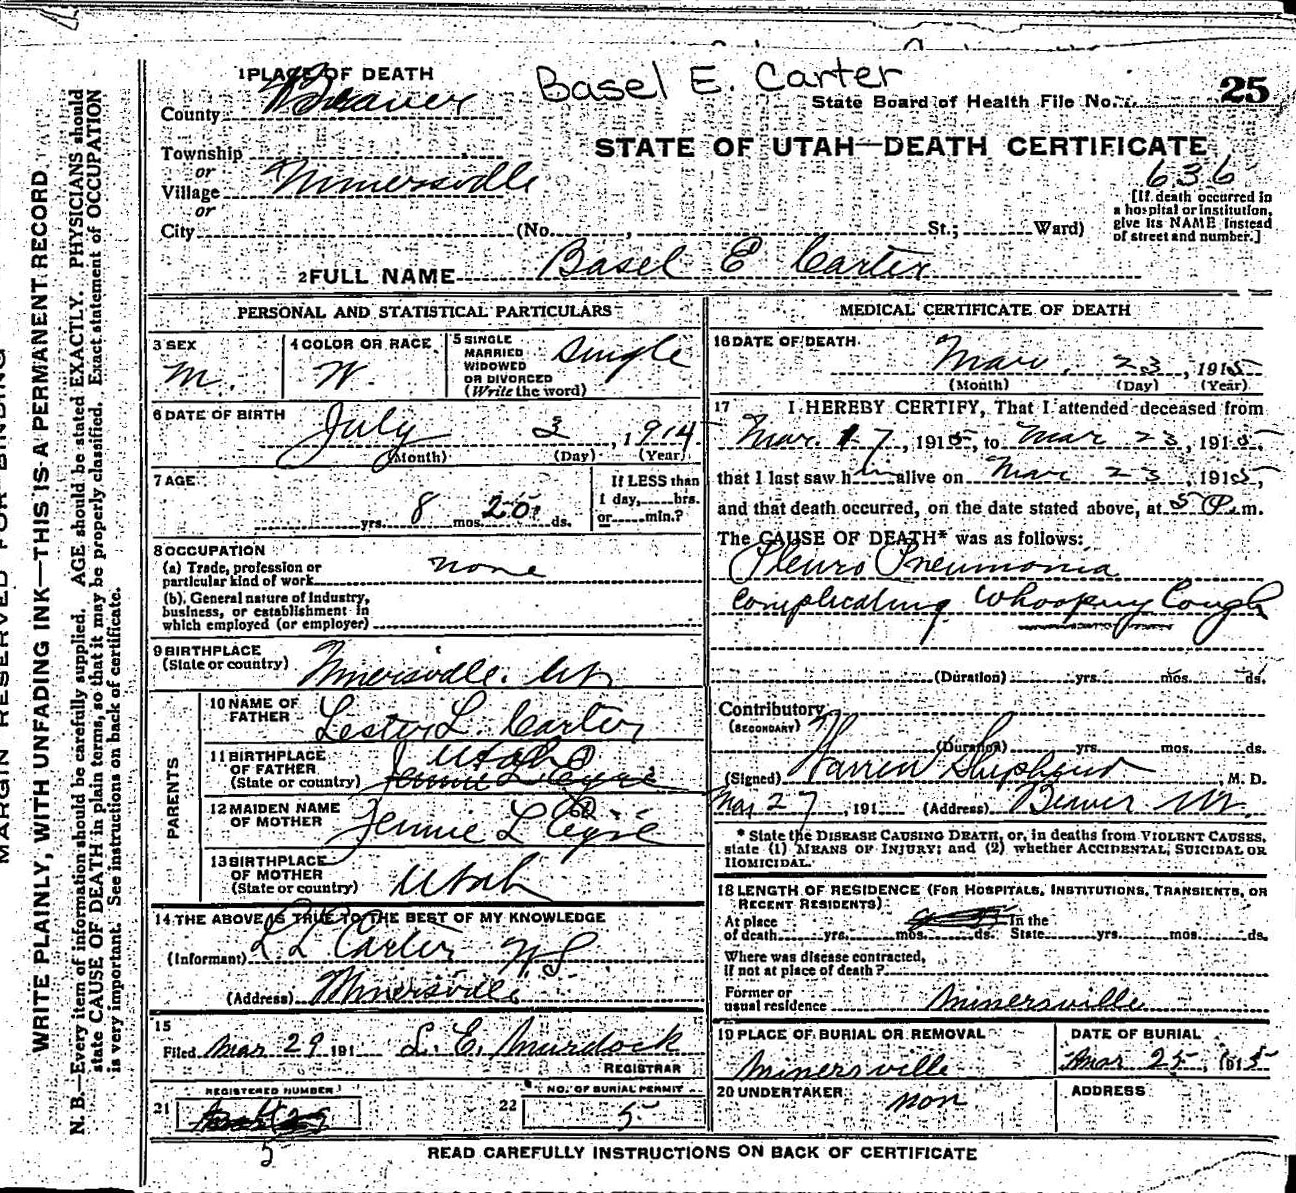 Basel E. Carter
1 PLACE OF DEATH
County Beaver
State Board of Health File No. 25
STATE OF UTAH—DEATH CERTIFICATE
636
Township
or
Village Minersville
or
City (No. , St.; Ward)
[If death occurred in
a hospital or institution,
give its NAME instead
of street and number.]
2 FULL NAME Basel E Carter
PERSONAL AND STATISTICAL PARTICULARS
3 SEX
M.
4 COLOR OR RACE
W.
5 SINGLE
MARRIED
WIDOWED
OR DIVORCED
(Write the word)
single
6 DATE OF BIRTH
July 3, 1914
(Month) (Day) (Year)
7 AGE
yrs. 8 mos. 20 ds.
If LESS than
1 day, hrs.
or min.?
8 OCCUPATION
(a) Trade, profession or
particular kind of work none
(b) General nature of Industry,
business, or establishment in
which employed (or employer)
9 BIRTHPLACE
(State or country) Minersville. Ut
PARENTS
10 NAME OF
FATHER Lester L. Carter
11 BIRTHPLACE
OF FATHER
(State or country) Utah
12 MAIDEN NAME
OF MOTHER Jennie L Eyre
13 BIRTHPLACE
OF MOTHER
(State or country) Utah
14 THE ABOVE IS TRUE TO THE BEST OF MY KNOWLEDGE
(Informant) L L Carter W S
(Address) Minersville
15
Filed Mar 29 191 L. E. Murdock
REGISTRAR
REGISTERED NUMBER
21
5
NO. OF BURIAL PERMIT
22 5
MEDICAL CERTIFICATE OF DEATH
16 DATE OF DEATH
Mar. 23, 1915
(Month) (Day) (Year)
17 I HEREBY CERTIFY, That I attended deceased from
Mar. 17, 1915, to Mar 23, 1915
that I last saw him alive on Mar 23 1915,
and that death occurred, on the date stated above, at 5 P. m.
The CAUSE OF DEATH* was as follows:
Pleuro Pneumonia
complicating Whooping Cough
(Duration) yrs. mos. ds.
Contributory
(SECONDARY)
(Duration) yrs. mos. ds.
(Signed) Warren Shepherd M. D.
Mar 27, 191 (Address) Beaver Ut.
* State the DISEASE CAUSING DEATH, or, in deaths from VIOLENT CAUSES,
state (1) MEANS OF INJURY; and (2) whether ACCIDENTAL, SUICIDAL OR
HOMICIDAL.
18 LENGTH OF RESIDENCE (FOR HOSPITALS, INSTITUTIONS, TRANSIENTS, OR
RECENT RESIDENTS)
At place
of death yrs. mos. ds.
In the
State yrs. mos. ds.
Where was disease contracted,
if not at place of death?
Former or
usual residence Minersville
19 PLACE OF BURIAL OR REMOVAL
Minersville
DATE OF BURIAL
Mar 25, 1915
20 UNDERTAKER
non
ADDRESS
READ CAREFULLY INSTRUCTIONS ON BACK OF CERTIFICATE
MARGIN RESERVED FOR BINDING
WRITE PLAINLY, WITH UNFADING INK—THIS IS A PERMANENT RECORD
N. B.—Every item of information should be carefully supplied. AGE should be stated EXACTLY. PHYSICIANS should
state CAUSE OF DEATH in plain terms, so that it may be properly classified. Exact statement of OCCUPATION
is very important. See instructions on back of certificate.